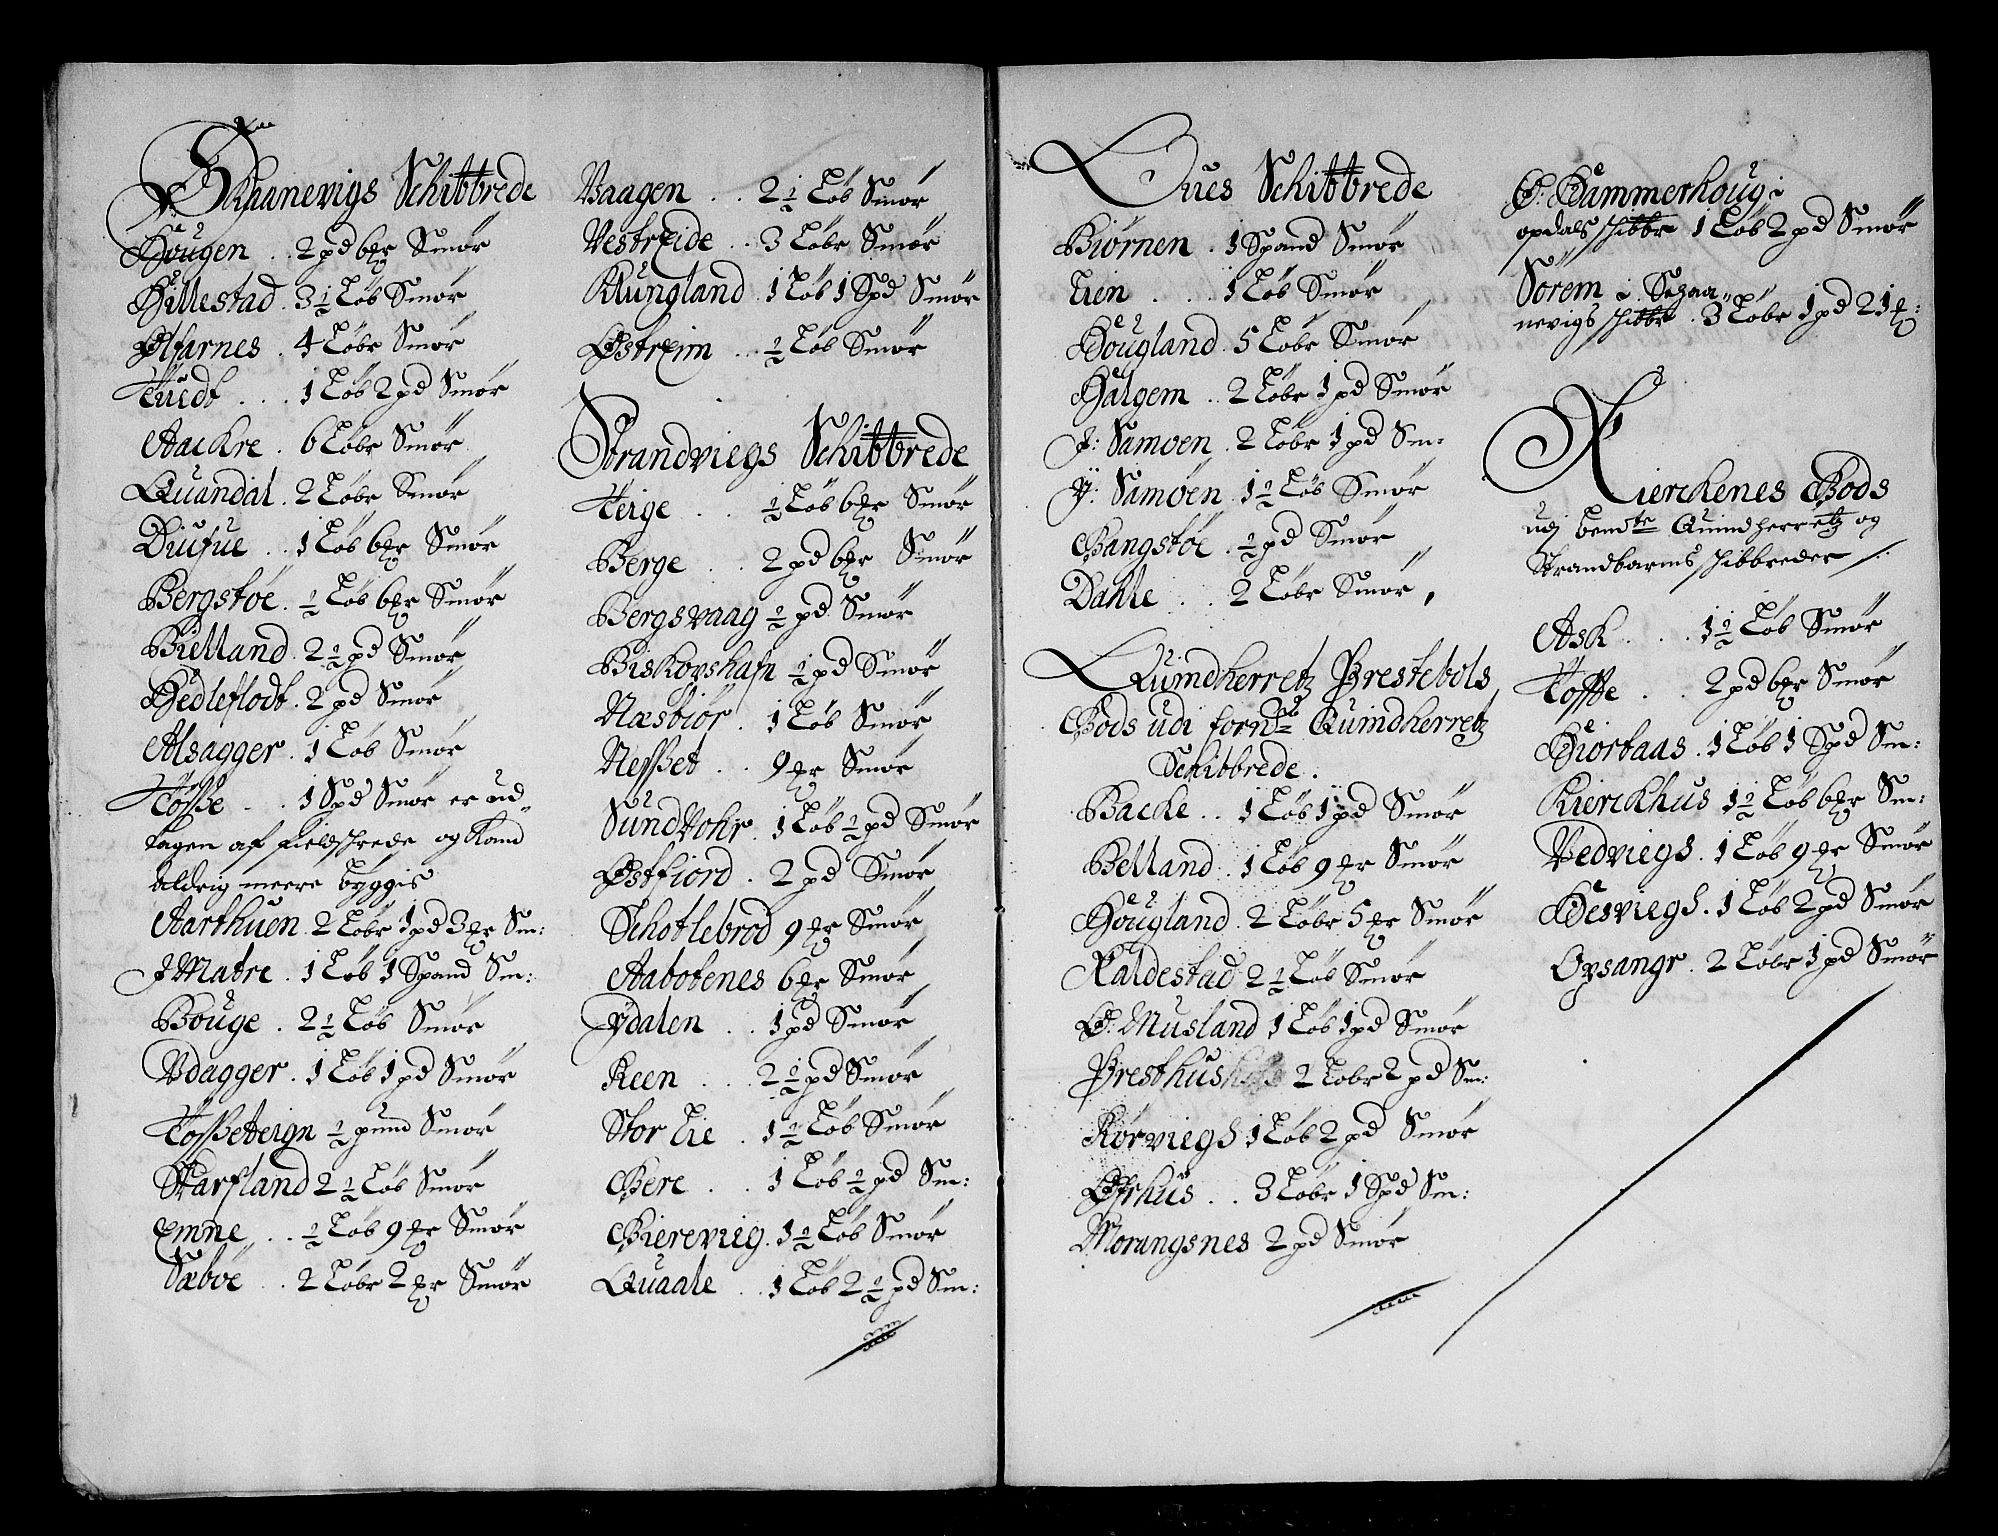 Schaanevigs Schibbrede
Hougen .. 2 pd 6 mr Smør
Hillestad . 3 1/2 Løb Smør
Ølfarnes . 4 Løbr Smør
Tuedt ... 1 Løb 2 pd Smør
Aackre . 6 Løbr Smør
Quandal . 2 Løbr Smør
Diufue .. 1 Løb 6 mr Smør
Bergstøe . 1/2 Løb 6 mr Smør
Bielland . 2 1/2 pd Smør
Hedleflodt . 2 pd Smør
Alsagger . 1 Løb Smør
Tosse .. 1 Spd Smør er ud-
tagen af Fieldschrede og Kand
aldrig meere byggis
Aarthuen . 2 Løbr 1 pd 3 mr Sm:
I Matre . 1 Løb 1 Spand Sm:
Bouge . 2 1/2 Løb Smør
Vdagger . 1 Løb 1 pd Smør
Tosseteign 1/2 pund Smør
Starfland 2 1/2 Løb Smør
Emne .. 1/2 Løb 9 mr Smør
Sæbøe .. 2 Løbr 2 mr Smør
Vaagen .. 2 1/2 Løb Smør
Vestreide .. 3 Løbr Smør
Klungland . 1 Løb 1 Spd Smør
Østreim .. 1/2 Løb Smør
Strandviegs Schibbrede
Teige .. 1/2 Løb 6 mr Smør
Berge .. 2 pd 6 mr Smør
Bergsvaag 1/2 pd Smør
Biskopshafn 1/2 pd Smør
Næsbiør . 1 Løb Smør
Nesset .. 9 mr Smør
Sundvohr . 1 Løb 1/2 pd Smør
Østfiord . 2 pd Smør
Schotlebrod 9 mr Smør
Aabotenes 6 mr Smør
Ydalen .. 1 pd Smør
Reen ... 2 1/2 pd Smør
Stor Lie . 1 1/2 Løb Smør
Gere .. 1 Løb 1/2 pd Sm:
Gierevieg . 1 1/2 Løb Smør
Quaale .. 1 Løb 2 1/2 pd Sm:
Ques Schibbrede
Biørnen . 1 Spand Smør
Lien .... 1 Løb Smør
Hougland . 5 Løbr Smør
Halgem .. 2 Løbr 1 pd Smør
I: Samøen . 2 Løbr 1 pd Sm:
Y: Samøen . 1 1/2 Løb Smør
Bangstøe . 1/2 pd Smør
Dahle .. 2 Løbr Smør
Quindherretz Prestebols
Gods udi fornde Quindherretz
Schibbrede .
Bache .. 1 Løb 1 pd Smør
Belland . 1 Løb 9 mr Smør
Hougland . 2 Løbr 5 mr Smør
Kaldestad 2 1/2 Løb Smør
Ø. Musland 1 Løb 1 pd Smør
Presthus 2 Løbr 2 pd Sm:
Rørviegs 1 Løb 2 pd Smør
Øfrhus .. 3 Løbr 1 Spd Sm:
Morangsnes 2 pd Smør
Ø. Hammerhoug i
opdals schibbr 1 Løb 2 pd Smør
Sörem i Schaa-
nevigs schibbr . 3 Løbr 1 pd 21 mr:
Kierckenes Gods
udj bemte Quindherretz og
Strandbarms schibbreder /:
Ask ... 1 1/2 Løb Smør
Tosse .. 2 pd 6 mr Smør
Giortaas . 1 Løb 1 Spd Sm:
Kierckhus 1 1/2 Løb 6 mr Sm:
Vedviegs . 1 Løb 9 mr Smør
Hesviegs . 1 Løb 2 pd Smør
Opsangr . 2 Løbr 1 pd Smør